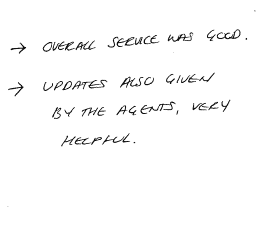 → OVERALL SERVICE WAS GOOD.
→ UPDATES ALSO GIVEN
BY THE AGENTS, VERY
HELPFUL.